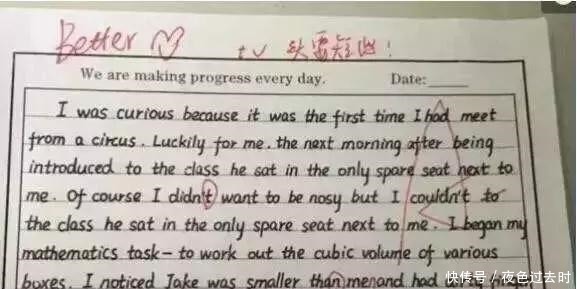 Better
tv 头要短些!
We are making progress every day. Date:
I was curious because it was the first time I had meet
from a circus. Luckily for me. the next morning after being
introduced to the class he sat in the only spare seat next to
me. Of course I didn't want to be nosy but I couldn't to
the class he sat in the only spare seat next to me. I began my
mathematics task - to work out the cubic volume of various
boxes. I noticed Jake was smaller than me and had
快传号/夜色过去时